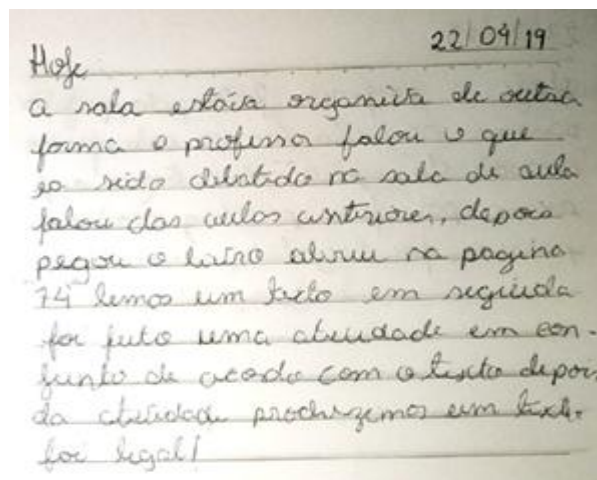 22/04/19
Hoje
a sala estava organiza de outra
forma o professo falou o que
sido debatido na sala de aula
falou das aulas anteriores, depois
pegou o livro abriu na pagina
74 lemos um texto em seguida
foi feito uma atividade em con-
junto de acordo com o texto depois
da atividade produzemos um texto
foi legal!